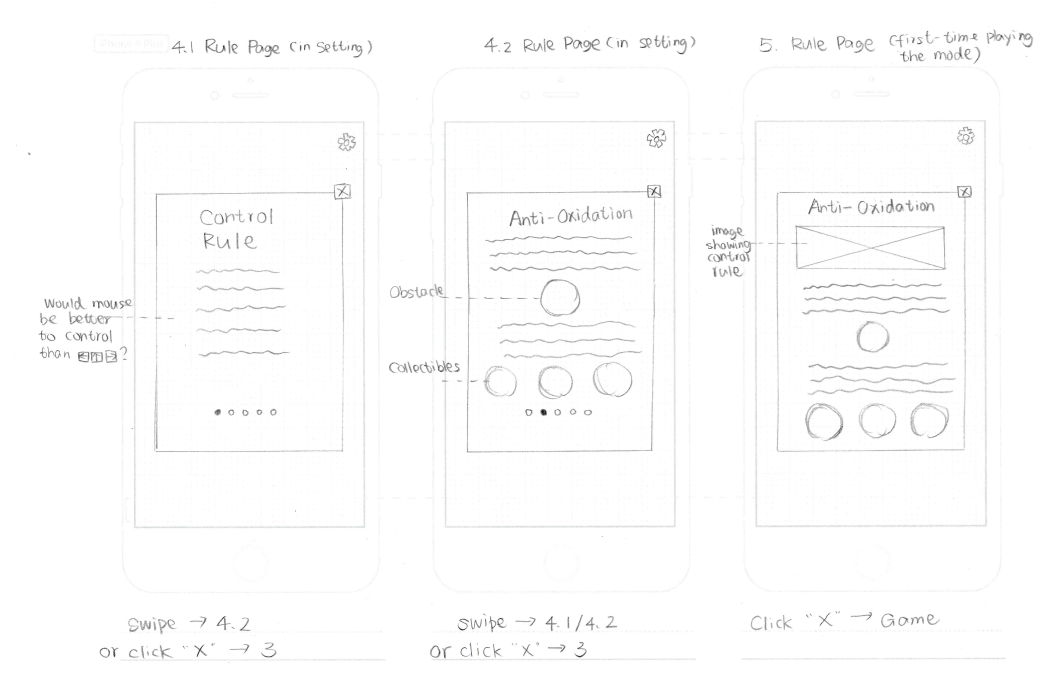 4.1 Rule Page (in setting)
Would mouse
be better
to control
than ?
X
Control
Rule
Swipe → 4.2
or click "X" → 3
4.2 Rule Page (in setting)
X
Anti-Oxidation
Obstacle
Collectibles
swipe → 4.1/4.2
or click "X" → 3
5. Rule Page (first-time playing
the mode)
X
Anti-Oxidation
image
showing
control
rule
Click "X" → Game